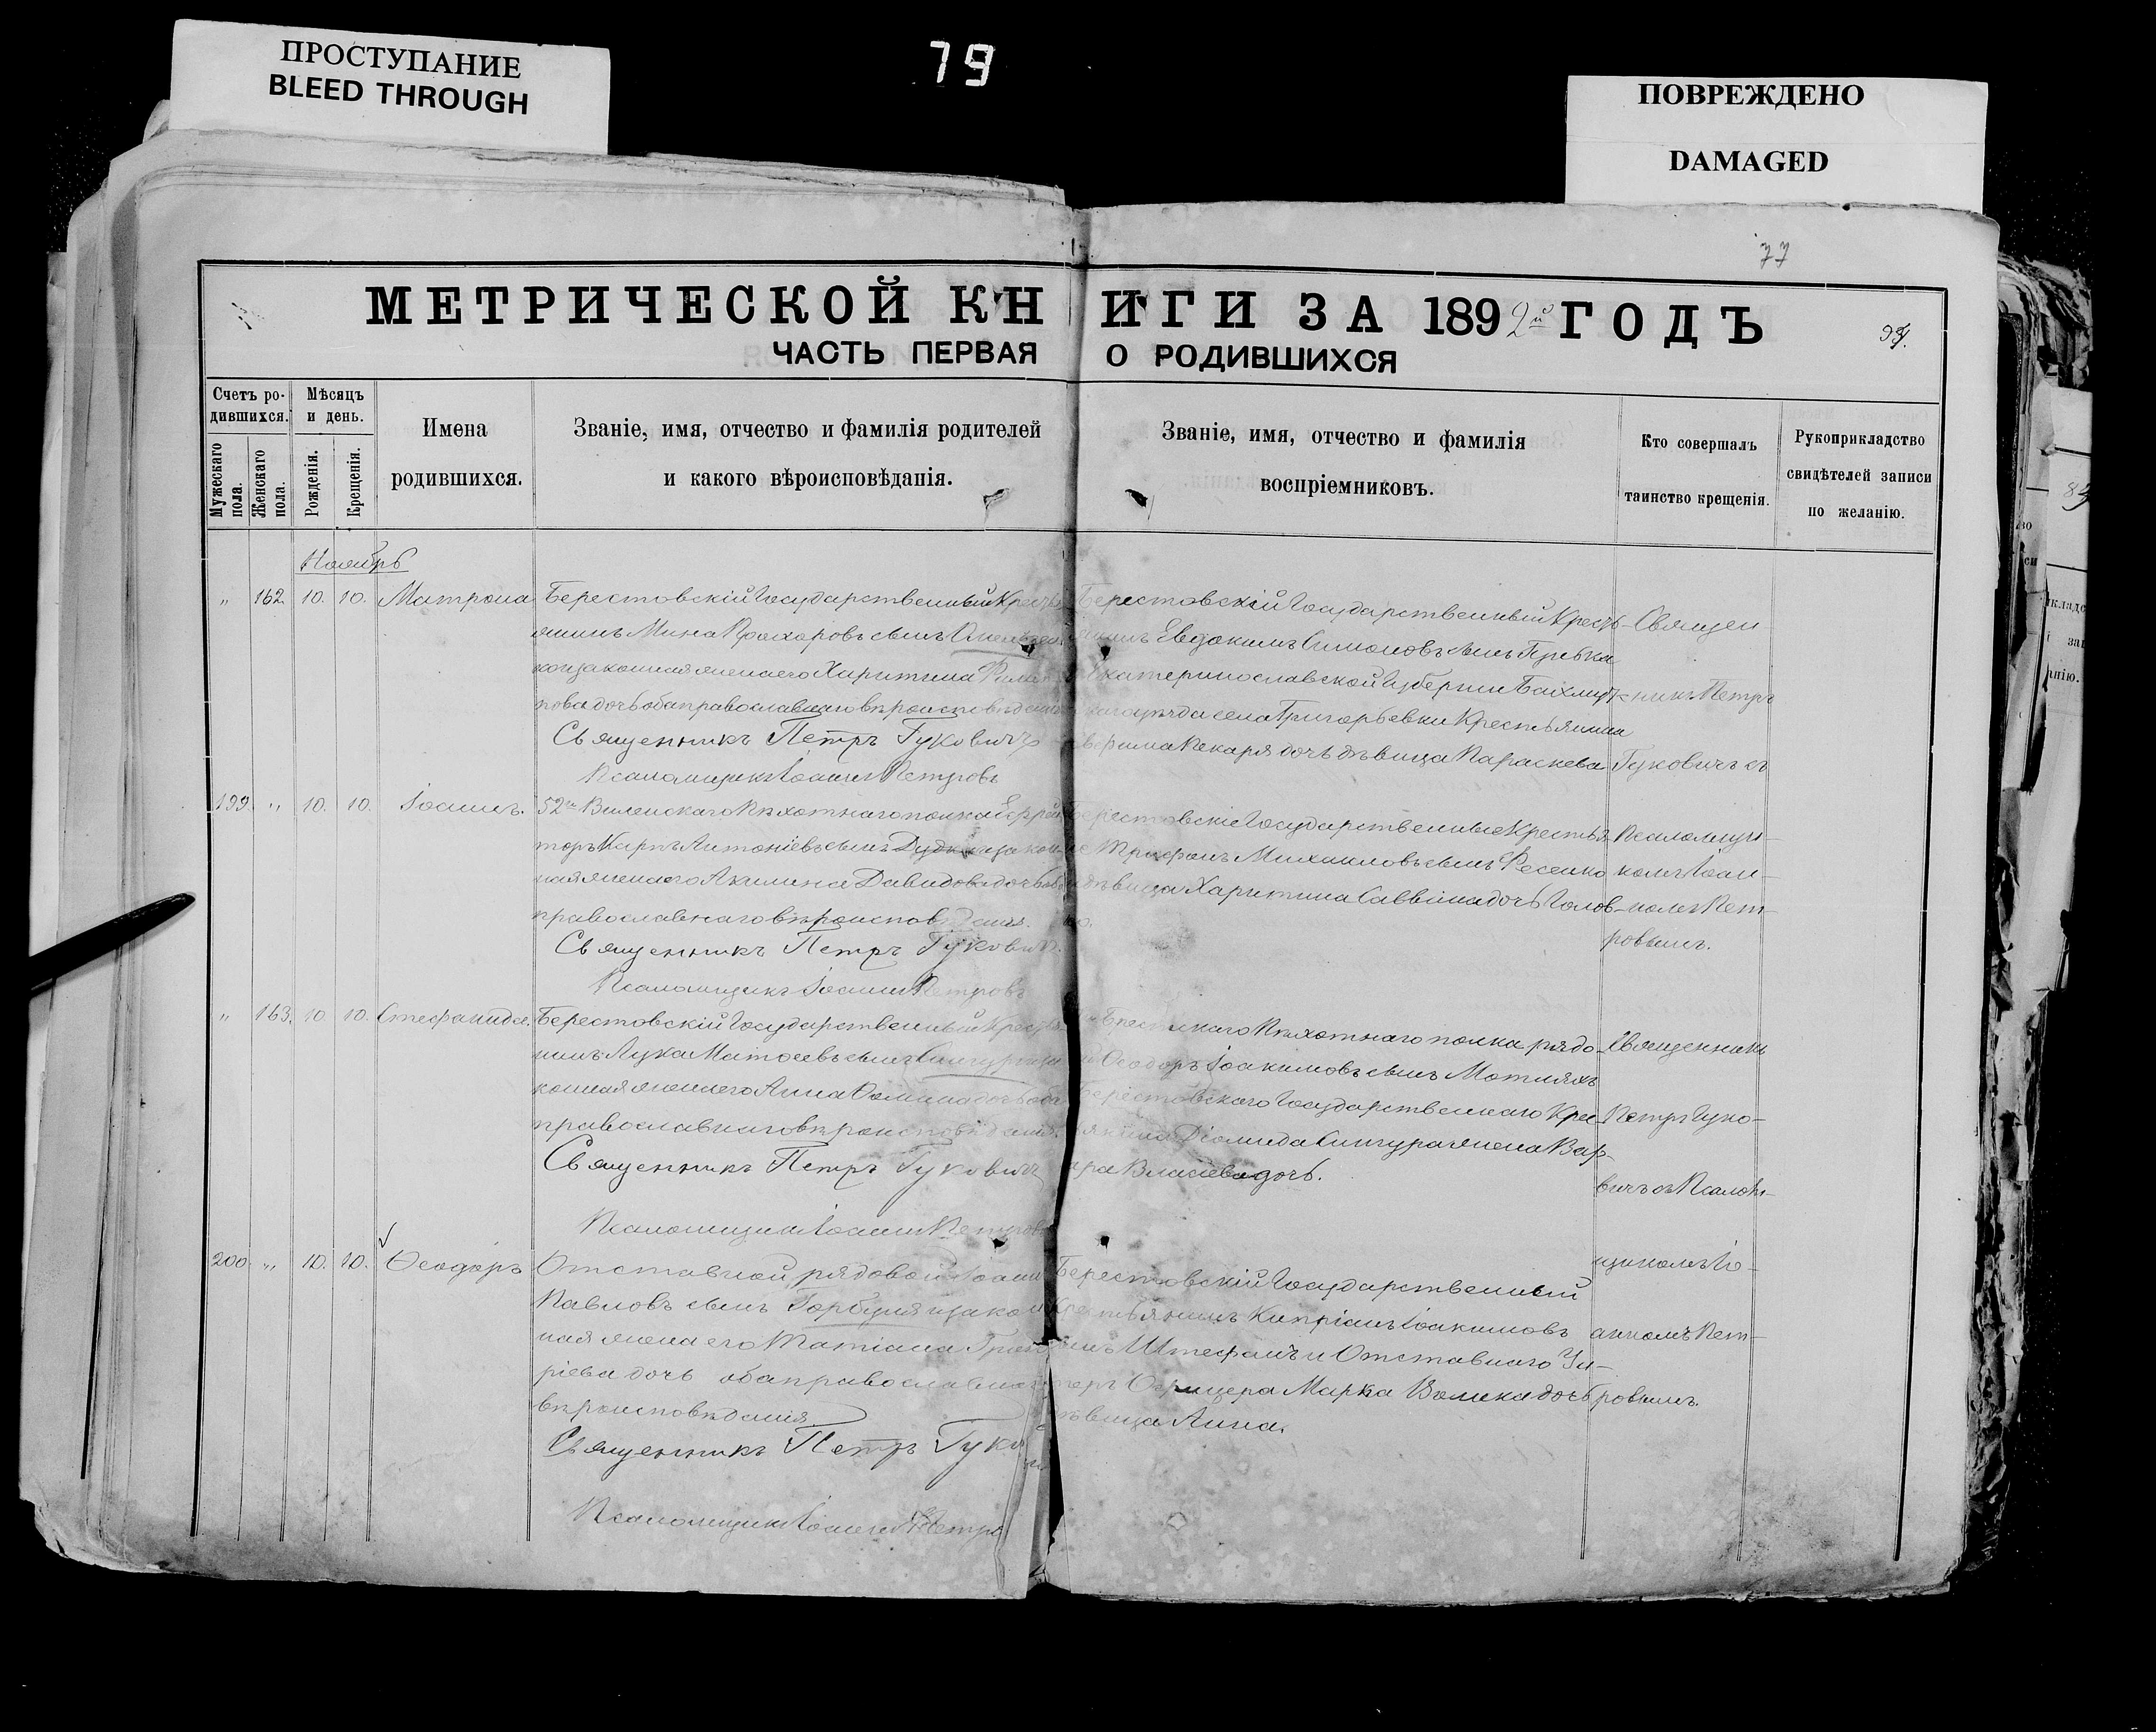 ПРОСТУПАНИЕ
BLEED THROUGH
79
ПОВРЕЖДЕНО
DAMAGED
77
МЕТРИЧЕСКОЙ КНИГИ ЗА 1892й ГОДЪ
ЧАСТЬ ПЕРВАЯ О РОДИВШИХСЯ
Счетъ ро-
дившихся.
Мужескаго пола.
Женскаго пола.
Мѣсяцъ
и день.
Рожденія.
Крещенія.
Имена
родившихся.
Званіе, имя, отчество и фамилія родителей
и какого вѣроисповѣданія.
Званіе, имя, отчество и фамилія
воспріемниковъ.
Кто совершалъ
таинство крещенія.
Рукоприкладство
свидѣтелей записи
по желанію.
Ноябрь
" 162. 10. 10. Матрона
Берестовскій Государственный Кресть
янинъ Мина Прохоровъ сынъ
законная жена его Харитина
пова дочь оба православнаго вѣроисповѣданія
Священникъ Петръ Гуковичъ
Псаломщикъ Іоаннъ Петровъ
Берестовскій Государственный Кресть-
янинъ Евдокимъ Симоновъ сынъ
Екатеринославской Губерніи Бахмут-
скаго уѣзда села Григорьевки Крестьянина
Пекаря дочь дѣвица Параскева
Священ
никъ Петръ
Гуковичъ съ
199. " 10. 10. Іоаннъ.
52го Виленскаго Пѣхотнаго полка Ефрей
торъ Карпъ Антоніевъ сынъ Дудка и закон
ная жена его Акилина Давидова дочь оба
православнаго вѣроисповѣданія.
Священникъ Петръ Гуковичъ.
Псаломщикъ Іоаннъ Петровъ
Берестовскіе Государственные Крестья
не Трифонъ Михаиловъ сынъ Фесенко
и дѣвица Харитина Саввина дочь Голов-
ко.
Псаломщи-
комъ Іоан-
номъ Пет-
ровымъ.
" 163. 10. 10. Стефанида.
Берестовскій Государственный Крестья
нинъ Лука Матѳеевъ сынъ Сингур и за
конная жена его Анна Фомина дочь оба
православнаго вѣроисповѣданія.
Священникъ Петръ Гуковичъ
Псаломщикъ Іоаннъ Петровъ
Брестскаго Пѣхотнаго полка рядо-
вой Ѳеодоръ Іоакимовъ сынъ Мотляхъ
Берестовскаго Государственнаго Крес-
тьянина Діомида Сингура жена Вар-
вара Власіева дочь.
Священникъ
Петръ Гуко-
вичъ съ Псалом-
щикомъ Іо-
анномъ Пет-
ровымъ.
200. " 10. 10. Ѳеодоръ
Отставной рядовой Іоаннъ
Павловъ сынъ Горбуля и закон
ная жена его Татіана Григо
ріева дочь оба православнаго
вѣроисповѣданія.
Священникъ Петръ Гуко
Псаломщикъ Іоаннъ Петро
Берестовскій Государственный
Крестьянинъ Кипріанъ Іоакимовъ
сынъ Штефанъ и Отставного Ун-
теръ Офицера Марка Волика дочь
дѣвица Анна.